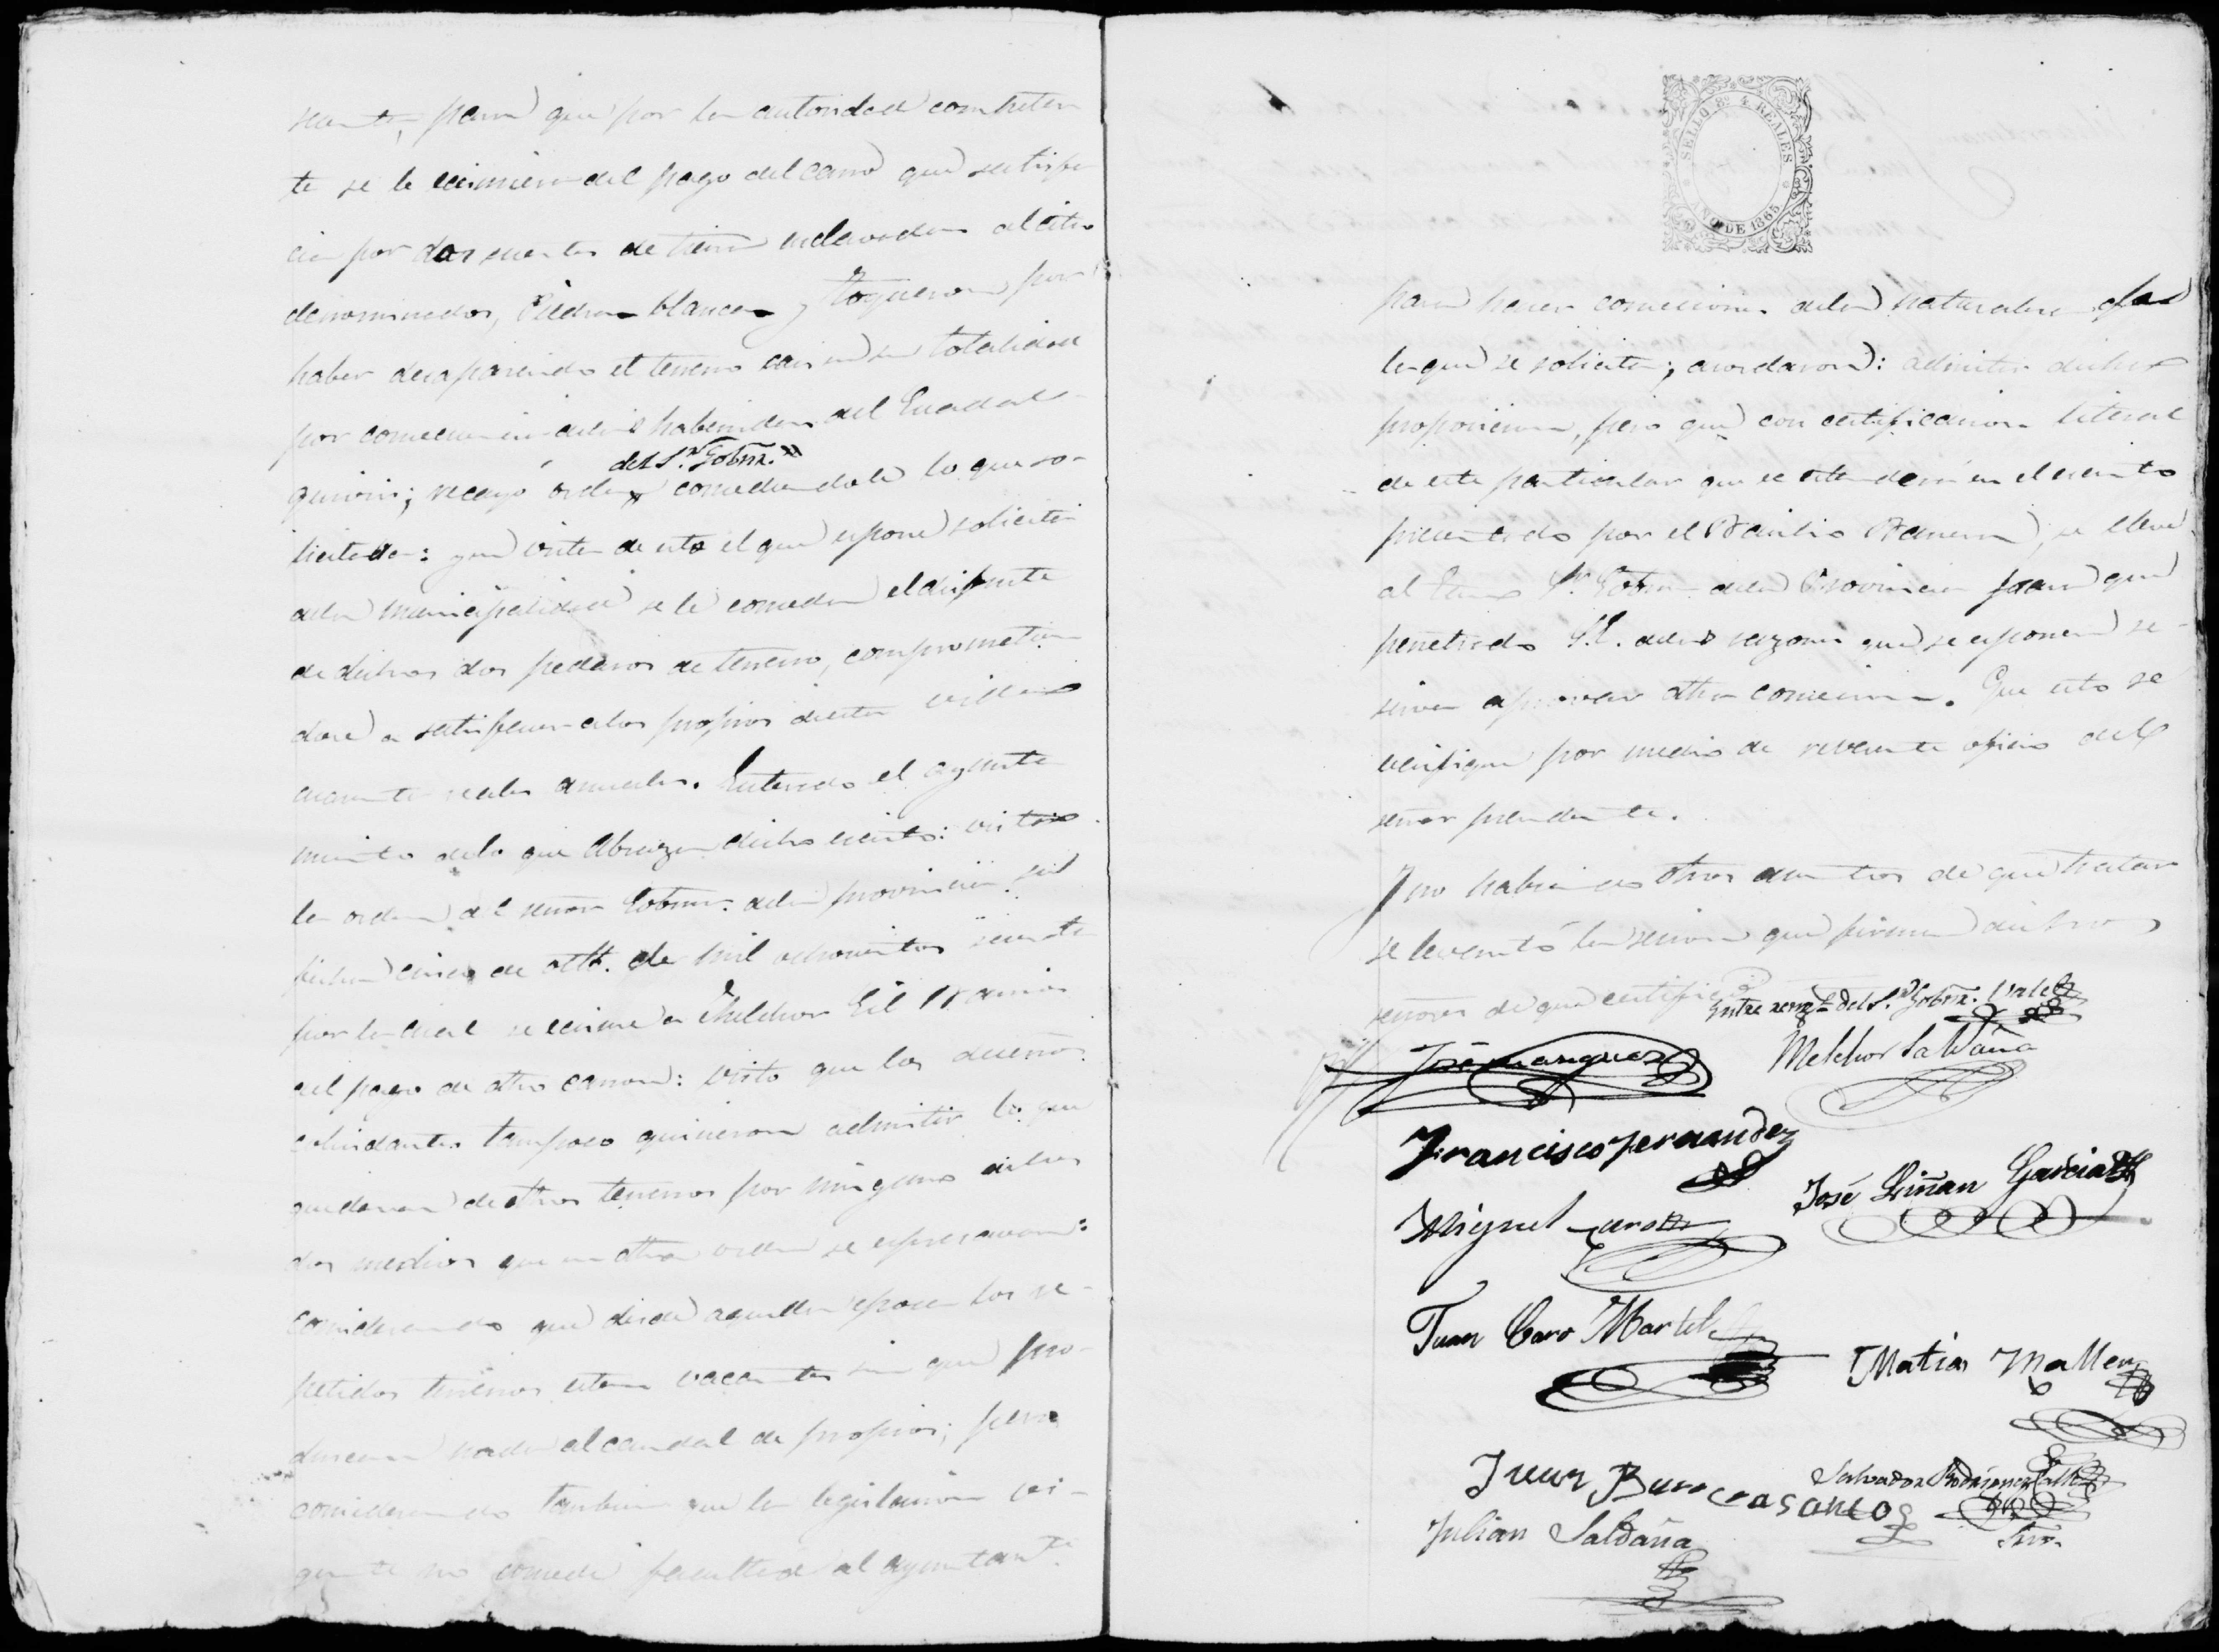 para que por la autoridad competen
te se le eximiera del pago del canon que satisfa
cia por dos suertes de tierra enclavadas al sitio
denominados, Piedras blancas y Toqueron por
haber desaparecido el terreno casi en su totalidad
por consecuencia de las habenidas del Guadal-
del Sr. Gobnr.
recayo orden concediendole lo que so-
licitaba: que vista de esto el que espone solicita
de la municipalidad se le conceda el disfrute
de dichos dos pedazos de terreno, comprometien
dose a satisfacer a los propios
reales anuales. Enterado el ayunta
miento de lo que abraza dicho escrito: vista
la orden del señor Gobnr. de la provincia su
fecha cinco de de mil ochocientos sesenta
por la cual se exime a Melchor Gil Ramirez
del pago de dho canon: visto que los dueños
colindantes tampoco quisieron admitir lo que
quedara de dhos terrenos por ninguno de los
dos medios que en dha orden se espresaron:
considerando que desde aquella epoca los re-
petidos terrenos estan vacantes sin que pro-
duzcan nada al caudal de propios; pero
considerando tambien que la legislacion vi-
gente no concede facultad al ayuntamto.
SELLO 8º 4 REALES
AÑO DE 1865
para hacer concesiones de la naturaleza
la que se solicita; acordaron: admitir dicha
proposicion, pero que con certificacion literal
de este particular que se estenderá en el escrito
presentado por el se lleve
al Sr. Gobnr de la Provincia para que
penetrado S.E. de las razones que se esponen se
sirva aprovar dha concesion. Que esto se
verifique por medio de reverente oficio del
señor presidente.
Y no habiendo otros asuntos de que tratar
se levantó la sesion que firman dichos
señores de que certifico
Entre reng.s del Sr. Gobnr. Vale
José Marquez
Melchor Saldaña
Francisco Fernandez
José Liñan Garcia
Miguel Caro
Juan Caro Martel
Matias Mallen
Salvador Rodriguez
Juan
Srio.
Julian Saldaña